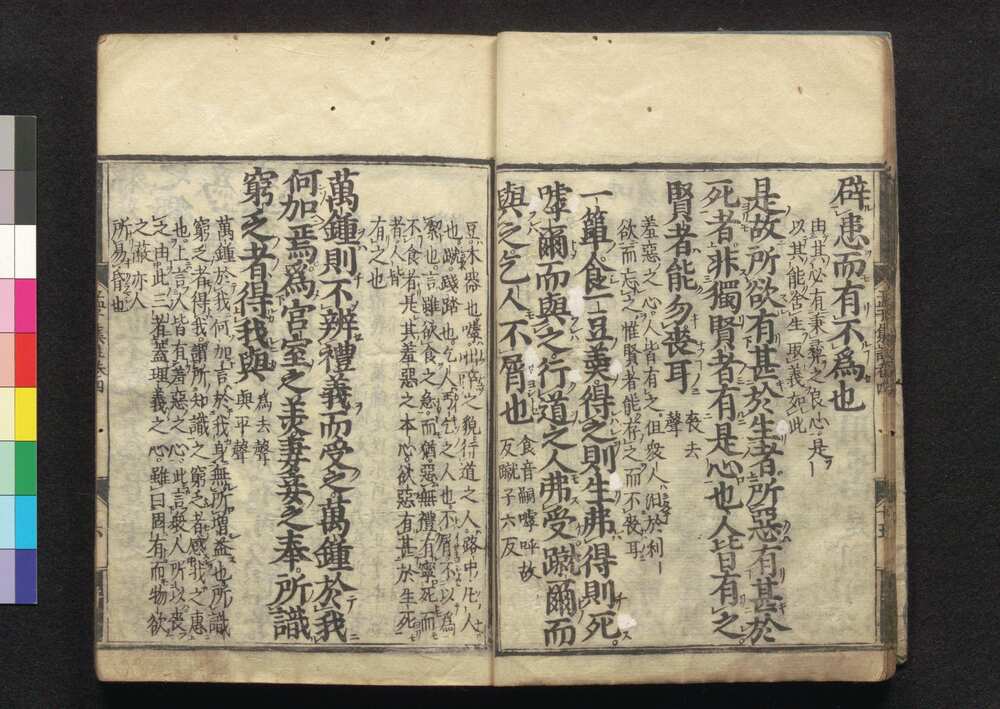 辟患而有不爲也
由其必有秉彛之良心是
以其能舍生取義如此
是故所欲有甚於生者所惡有甚於
死者非獨賢者有是心也人皆有之
賢者能勿喪耳
喪去
聲
羞惡之心人皆有之但衆人汨於利
欲而忘之惟賢者能存之而不喪耳
一簞食一豆羮得之則生弗得則死
嘑爾而與之行道之人弗受蹴爾而
與之乞人不屑也
食音嗣嘑呼故
反蹴子六反
豆木器也嘑咄啐之貌行道之人路中凡人
也蹴踐踏也乞人丐乞之人也不屑不以爲
絜也言雖欲食之急而猶惡無禮有寧死而
不食者是其羞惡之本心欲惡有甚於生死
者人皆
有之也
萬鍾則不辨禮義而受之萬鍾於我
何加焉爲宮室之美妻妾之奉所識
窮乏者得我與
爲去聲
與平聲
萬鍾於我何加言於我身無所增益也所識
窮乏者得我謂所知識之窮乏者感我之惠
也上言人皆有羞惡之心此言衆人所以喪
之由此三者蓋理義之心雖曰固有而物欲
之蔽亦人
所易昏也